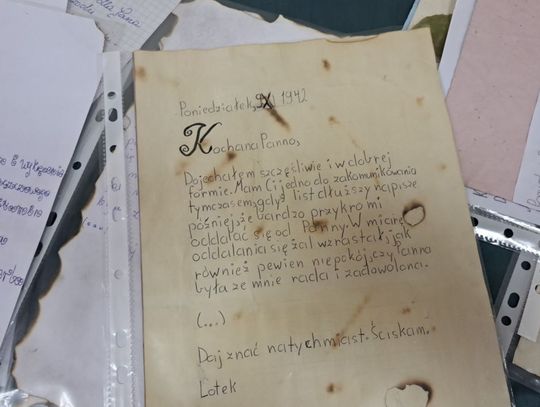 Poniedziałek, 1942
Kochana Panno,
Dojechałem szczęśliwie i w dobrej
formie. Mam Ci jedno do zakomunikowania
tymczasem, gdyż list dłuższy napiszę
później, że bardzo przykro mi
oddalać się od Panny. W miarę
oddalania się żal wzrastał, jak
również pewien niepokój, czy Panna
była ze mnie rada i zadowolona.
(...)
Daj znać natychmiast. Ściskam.
Lotek